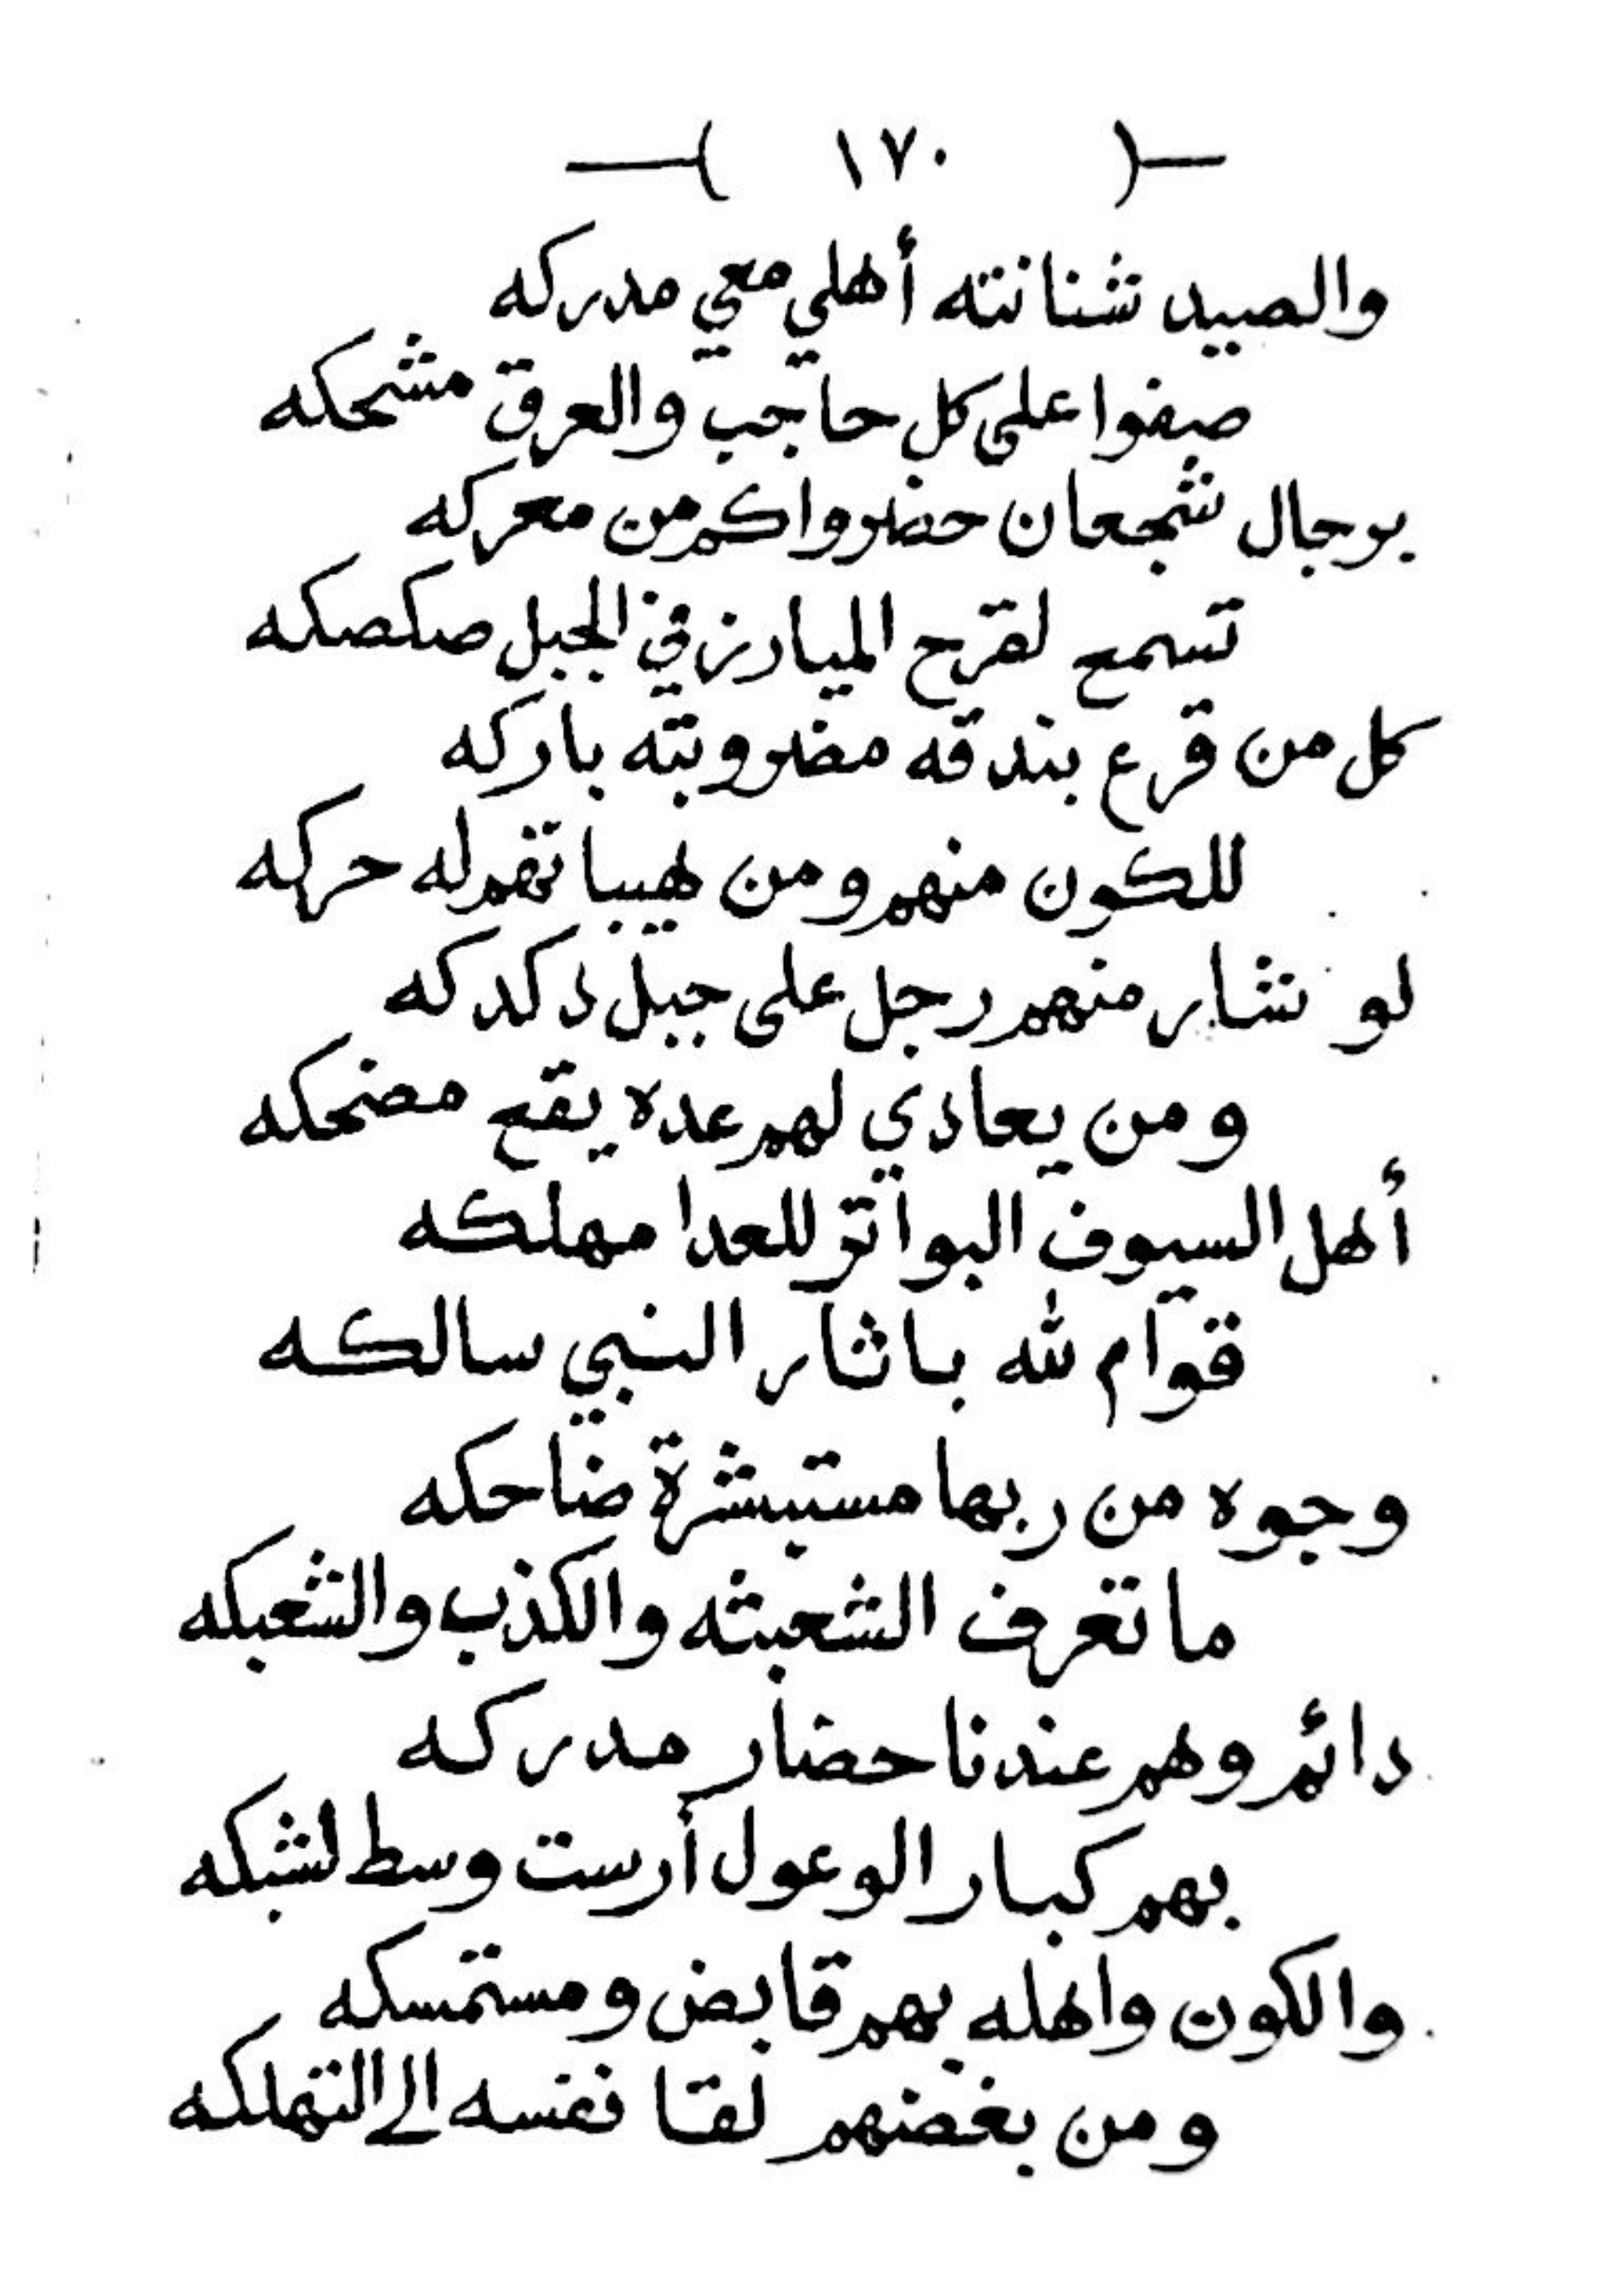 —( ١٧٠ )—
والصيد شنانته أهلي معي مدركه
صفوا على كل حاجب والعرق مشحكه
برجال شجعان حضروا كم من معركه
تسمع لقرح الميازر في الجبل صكصكه
كل من قرع بندقه مضروبته باركه
للكون منهم ومن لهيبا تقم له حركه
لو نشار منهم رجل على جبل دكدكه
ومن يعادي لهم عده يقع مضحكه
أهل السيوف البواتر للعدا مهلكه
قوام لله باثار النبي سالكه
وجوه من ربها مستبشرة ضاحكه
ما تعرف الشعبثه والكذب والشعبكه
دائم وهم عندنا حضار مدركه
بهم كبار الوعول أرست وسط لشبكه
والكون واهله بهم قابض ومستمسكه
ومن بغضهم لقا نفسه الى التهلكه